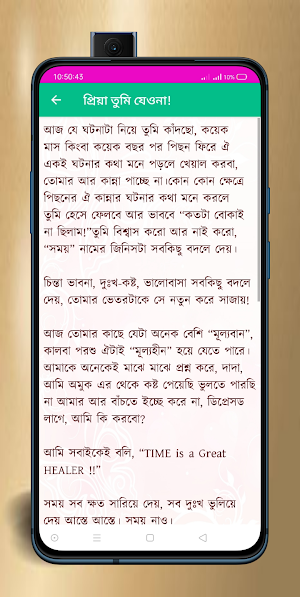 10:50:43
10%
প্রিয়া তুমি যেওনা!
আজ যে ঘটনাটা নিয়ে তুমি কাঁদছো, কয়েক
মাস কিংবা কয়েক বছর পর পিছন ফিরে ঐ
একই ঘটনার কথা মনে পড়লে খেয়াল করবা,
তোমার আর কান্না পাচ্ছে না।কোন কোন ক্ষেত্রে
পিছনের ঐ কান্নার ঘটনার কথা মনে করলে
তুমি হেসে ফেলবে আর ভাববে “কতটা বোকাই
না ছিলাম!”তুমি বিশ্বাস করো আর নাই করো,
“সময়” নামের জিনিসটা সবকিছু বদলে দেয়।
চিন্তা ভাবনা, দুঃখ-কষ্ট, ভালোবাসা সবকিছু বদলে
দেয়, তোমার ভেতরটাকে সে নতুন করে সাজায়!
আজ তোমার কাছে যেটা অনেক বেশি “মূল্যবান”,
কালবা পরশু ঐটাই “মূল্যহীন” হয়ে যেতে পারে।
আমাকে অনেকেই মাঝে মাঝে প্রশ্ন করে, দাদা,
আমি অমুক এর থেকে কষ্ট পেয়েছি ভুলতে পারছি
না আমার আর বাঁচতে ইচ্ছে করে না, ডিপ্রেসড
লাগে, আমি কি করবো?
আমি সবাইকেই বলি, “TIME is a Great
HEALER !!”
সময় সব ক্ষত সারিয়ে দেয়, সব দুঃখ ভুলিয়ে
দেয় আস্তে আস্তে। সময় নাও।